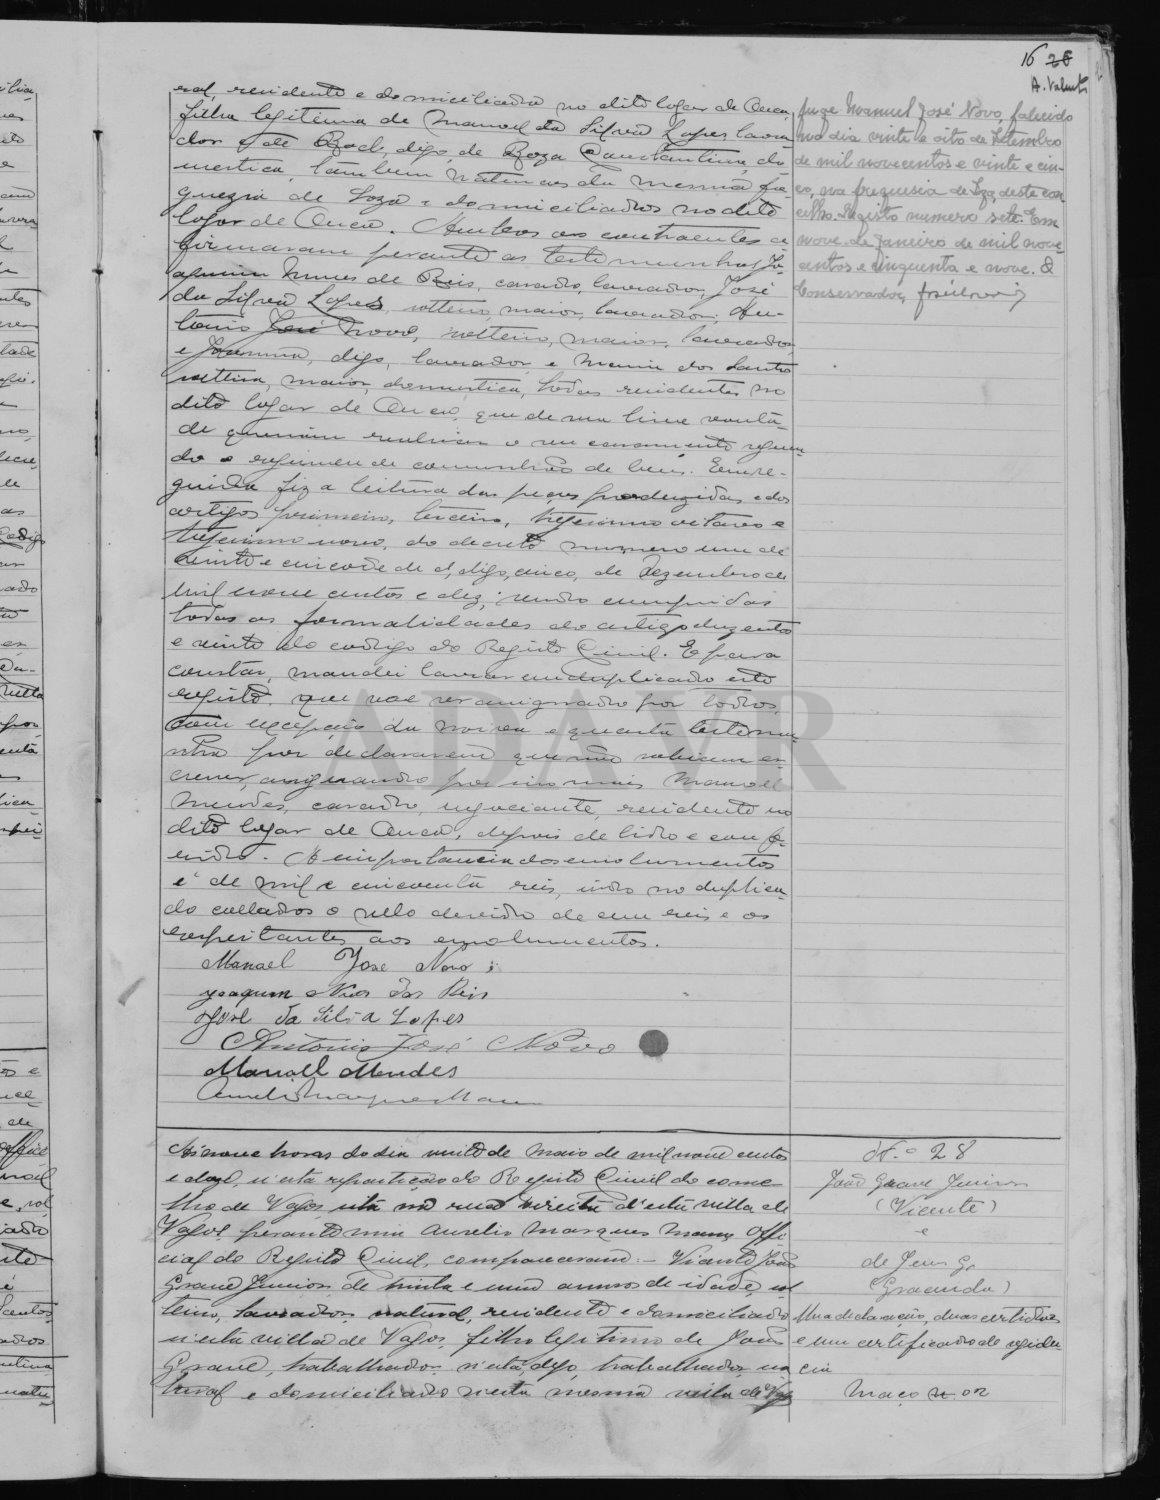 16 26
A. Valente
ral, residente e domiciliada no dito logar de Ouca,
filha legitima de Manoel da Silva Lopes lavra
dor e de Roza, digo, de Roza Constantina, do
mestica, tambem naturaes da mesma fre
guezia de Soza e domiciliados no dito
logar de Ouca. Ambos os contraentes a
firmaram perante as testemunhas Jo
aquim Nunes de Reis, casado, lavrador, José
da Silva Lopes, solteiro, maior, lavrador, An-
tonio José Novo, solteiro, maior, lavrador
e Joanna, digo, lavrador e Maria dos Santos
solteira, maior, domestica, todos residentes no
dito logar de Ouca, que de sua livre vonta-
de queriam realisar o seu casamento segun
do o regimen de comunhão de bens. Em se-
guida fiz a leitura das peças produzidas e dos
artigos primeiro, terceiro, trigesimo oitavo e
trigesimo nono, do decreto numero um de
vinte e cinco de d, digo, cinco, de Dezembro de
mil nove centos e dez, sendo cumpridas
todas as formalidades do artigo duzentos
e vinte do codigo do Registo Civil. E para
constar, mandei lavrar em duplicado este
registo, que vae ser assignado por todos,
com excepção da noiva e quarta testemu
nha por declararem que não sabiam es
crever, assignando por ellas mais Manoel
Mendes, casado, negociante, residente no
dito logar de Ouca, depois de lido e confe-
rido. A importancia dos emolumentos
é de mil e cincoenta reis, indo no duplica
do collados o sello devido de cem reis e os
respeitantes aos emolumentos.
Manoel Jose Novo
Joaquim Nunes dos Reis
José da Silva Lopes
Antonio José Novo
Manoell Mendes
Aurelio Marques Mano
juge Manuel José Novo, falecido
no dia vinte e oito de Setembro
de mil novecentos e vinte e cin-
co, na freguesia de Soza, deste con
celho. Registo numero sete. Em
nove de Janeiro de mil nove
centos e cinquenta e nove. O
Conservador,
ADAVR
Ás nove horas do dia vinte de Maio de mil nove centos
e doze, n'esta repartição do Registo Civil do conce
lho de Vagos, sita na rua direita d'esta villa de
Vagos, perante mim Aurelio Marques Mano Offi
cial do Registo Civil, compareceram: - Vicente João
Grave Junior, de trinta e um annos de idade, sol
teiro, lavrador, natural, residente e domiciliado
n'esta villa de Vagos, filho legitimo de João
Grave, trabalhador, n'esta, digo, trabalhador, na
tural e domiciliado n'esta mesma villa de Vagos
N.º 28
João Grave Junior
(Vicente)
e
de Jesus
(Gracinda)
Uma declaração, duas certidões
e um certificado de residen
cia
Maço n.º 2